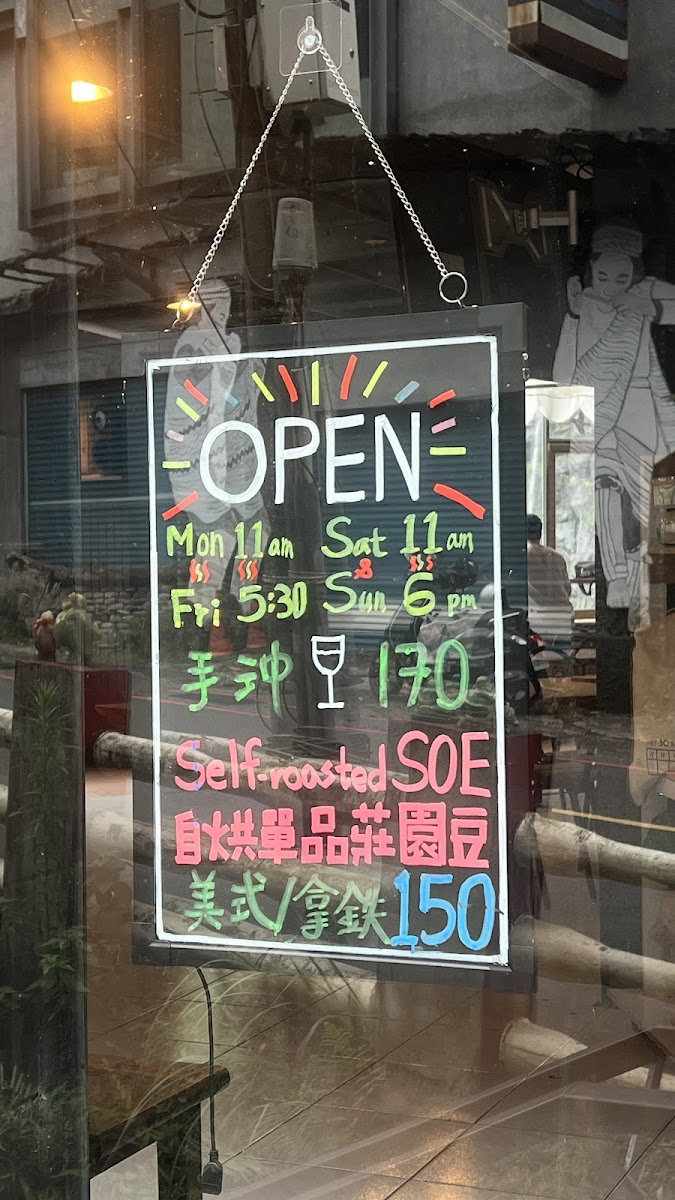 OPEN
Mon 11am Sat 11am
&
Fri 5:30 Sun 6pm
手沖 170
Self-roasted SOE
自烘單品莊園豆
美式/拿鐵 150